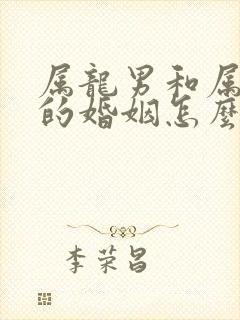 属龍男和属
的婚姻怎麽
李荣昌